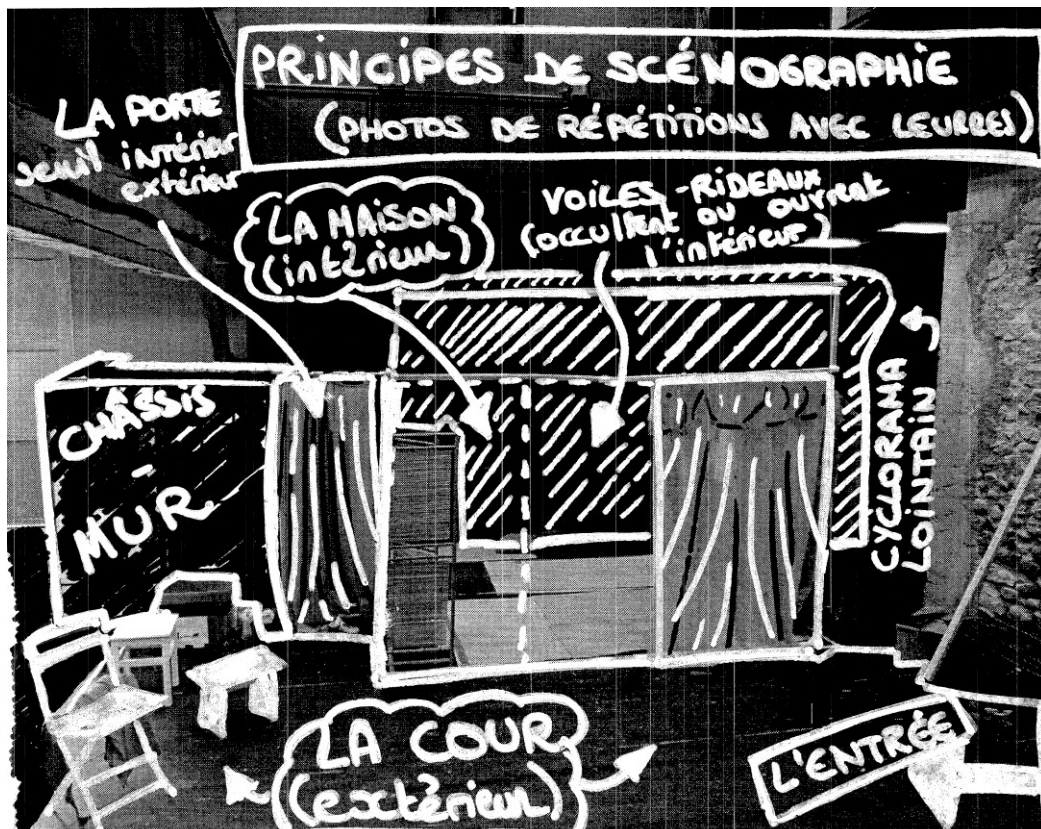 PRINCIPES DE SCÉNOGRAPHIE
(PHOTOS DE RÉPÉTITIONS AVEC LEURRES)
LA PORTE
seuil intérieur
extérieur
LA MAISON
(intérieur)
VOILES - RIDEAUX
(occultent ou ouvrent
l'intérieur)
CHÂSSIS
-
MUR
CYCLORAMA
LOINTAIN
LA COUR
(extérieur)
L'ENTRÉE